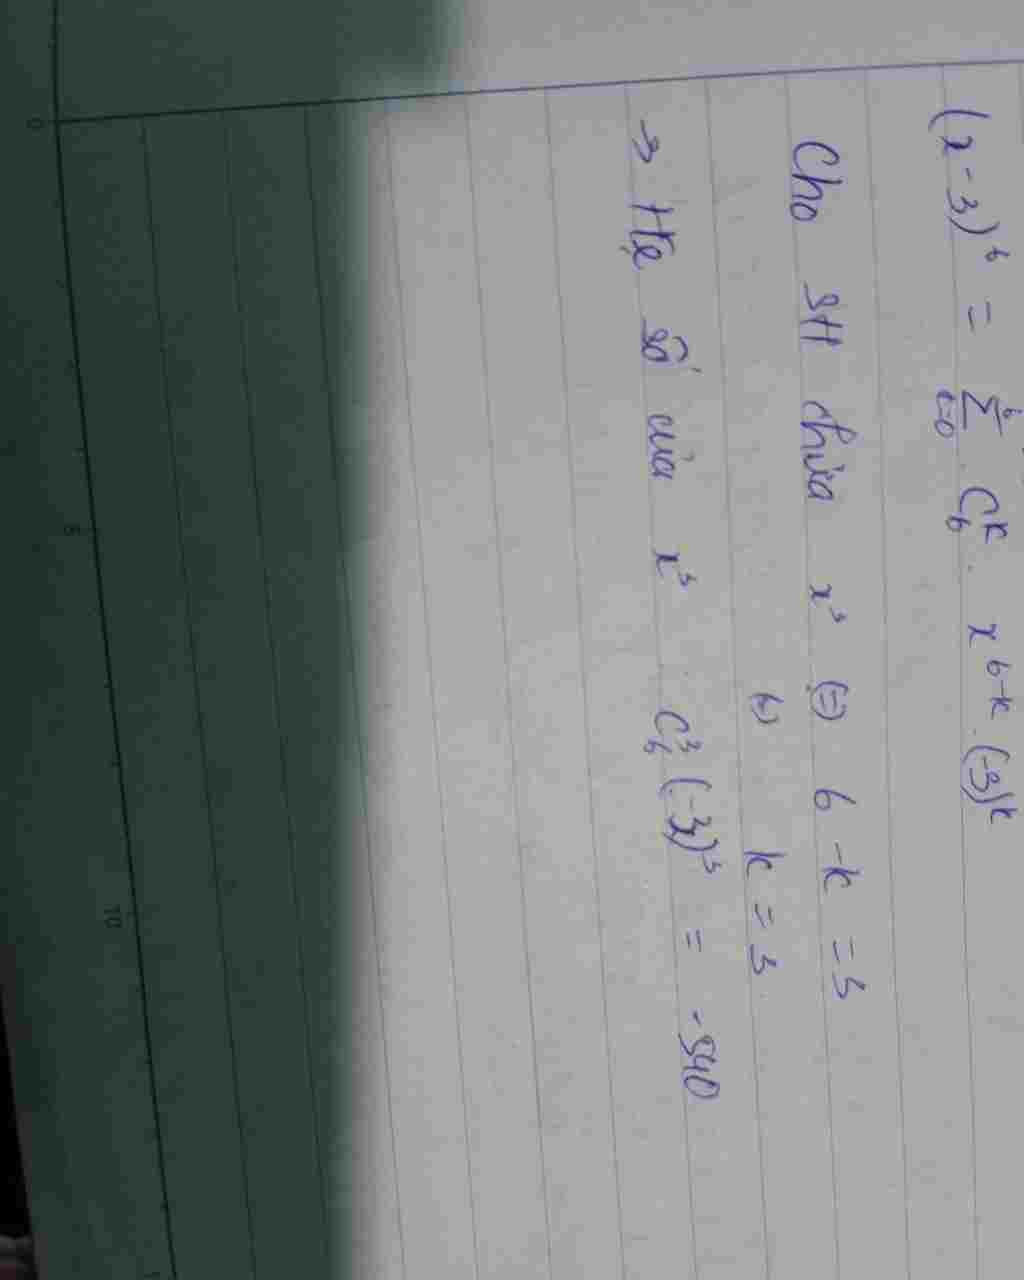 (x-3)⁶ = Σ⁶ₖ₌₀ C₆ᵏ . x⁶⁻ᵏ . (-3)ᵏ
Cho SH chứa x³ (=) 6 - k = 3
k = 3
→ Hệ số của x³ C₆³ (-3)³ = -540
0 5 10